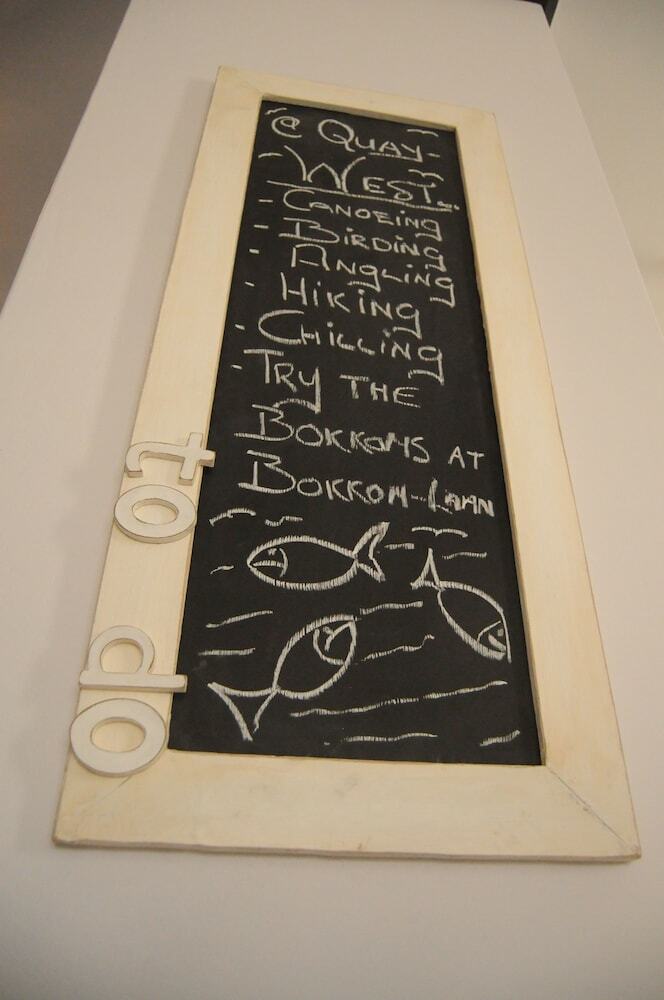 @ QUAY-
WEST...
- CANOEING
- BIRDING
- ANGLING
- HIKING
- CHILLING
- TRY THE
BOKKOMS AT
BOKKOM-LAAN
to do